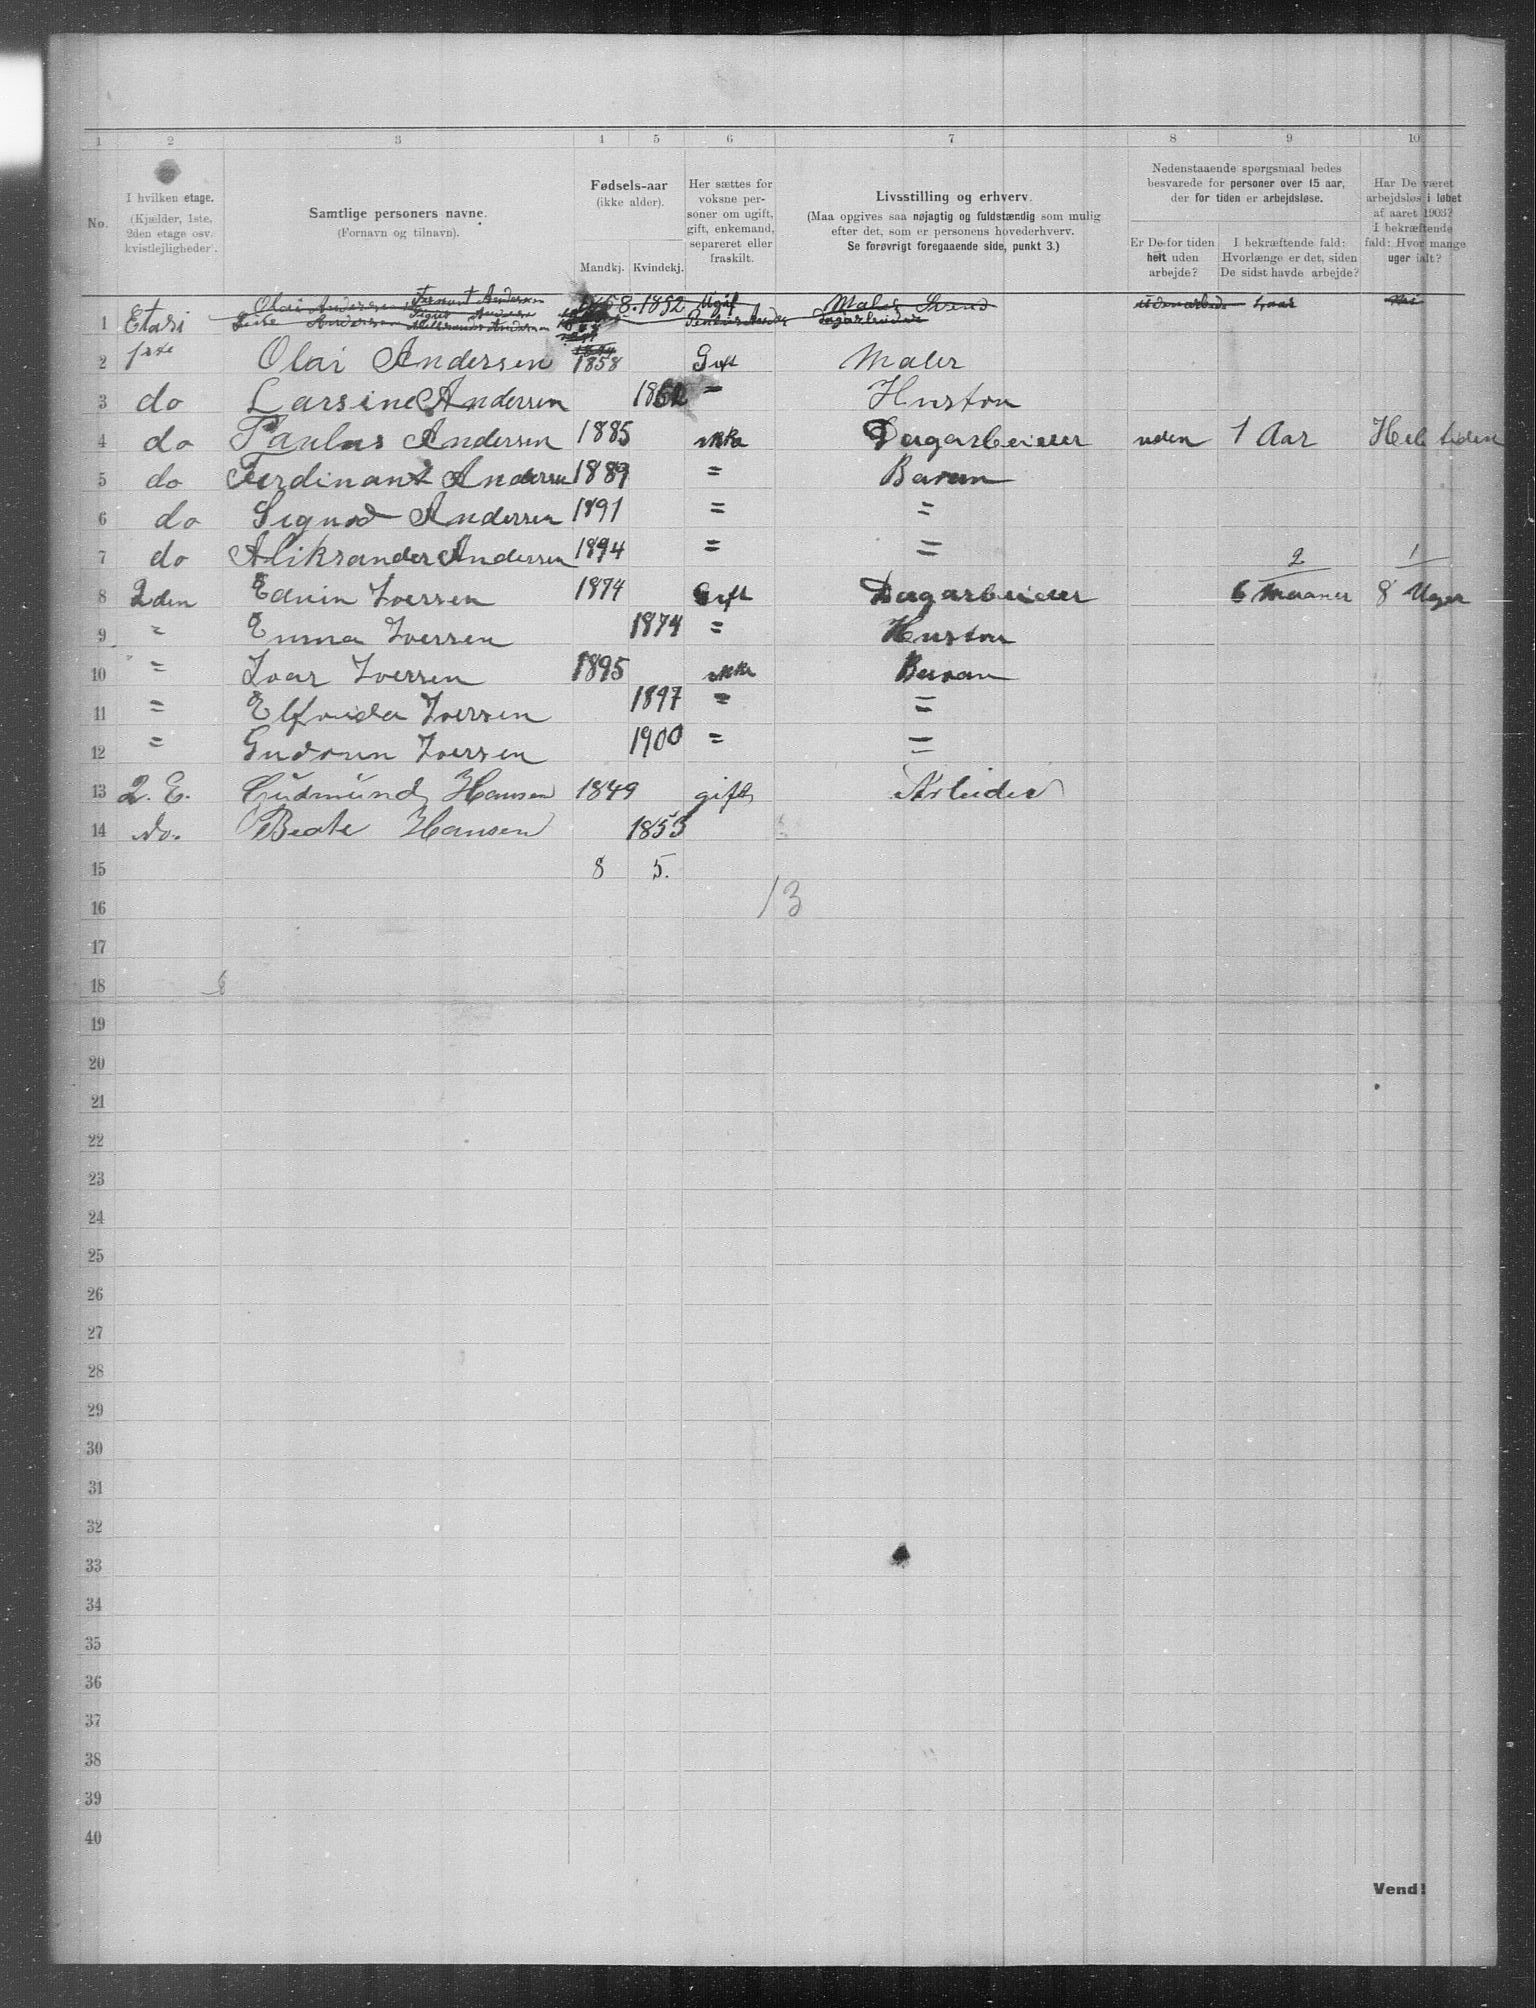 1 2 3 4 5 6 7 8 9 10
No.
I hvilken etage.
(Kjælder, 1ste,
2den etage osv.
kvistlejligheder).
Samtlige personers navne.
(Fornavn og tilnavn).
Fødsels-aar
(ikke alder).
Mandkj. Kvindekj.
Her sættes for
voksne per-
soner om ugift,
gift, enkemand,
separeret eller
fraskilt.
Livsstilling og erhverv.
(Maa opgives saa nøjagtig og fuldstændig som mulig
efter det, som er personens hovederhverv.
Se forøvrigt foregaaende side, punkt 3.)
Nedenstaaende spørgsmaal bedes
besvarede for personer over 15 aar,
der for tiden er arbejdsløse.
Er De for tiden
helt uden
arbejde?
I bekræftende fald:
Hvorlænge er det, siden
De sidst havde arbejde?
Har De været
arbejdsløs i løbet
af aaret 1903?
I bekræftende
fald: Hvor mange
uger ialt?
Olai Andersen Andersen 1852
1 Etasi Andersen Andersen
2 1ste Olai Andersen 1858 Gift Maler
3 do Larsine Andersen 1862 = Hustou
4 do Paulus Andersen 1885 ikke Dagarbeider uden 1 Aar Hele tiden
5 do Ferdinant Andersen 1889 = Baran
6 do Sigurd Andersen 1891 = =
7 do Aliksander Andersen 1894 = =
2 1
8 2den Edvin Iversen 1874 Gift Dagarbeider 6 Maaner 8 Uger
9 = Emma Iversen 1874 = Hustou
10 = Ivar Iversen 1895 ikke Baran
11 = Elfrida Iversen 1897 = =
12 = Gudrun Iversen 1900 = =
13 2. E. Gudmund Hansen 1849 gift Arbeider
14 do. Beate Hansen 1853
15 8 5.
16 13
17
18
19
20
21
22
23
24
25
26
27
28
29
30
31
32
33
34
35
36
37
38
39
40
Vend!